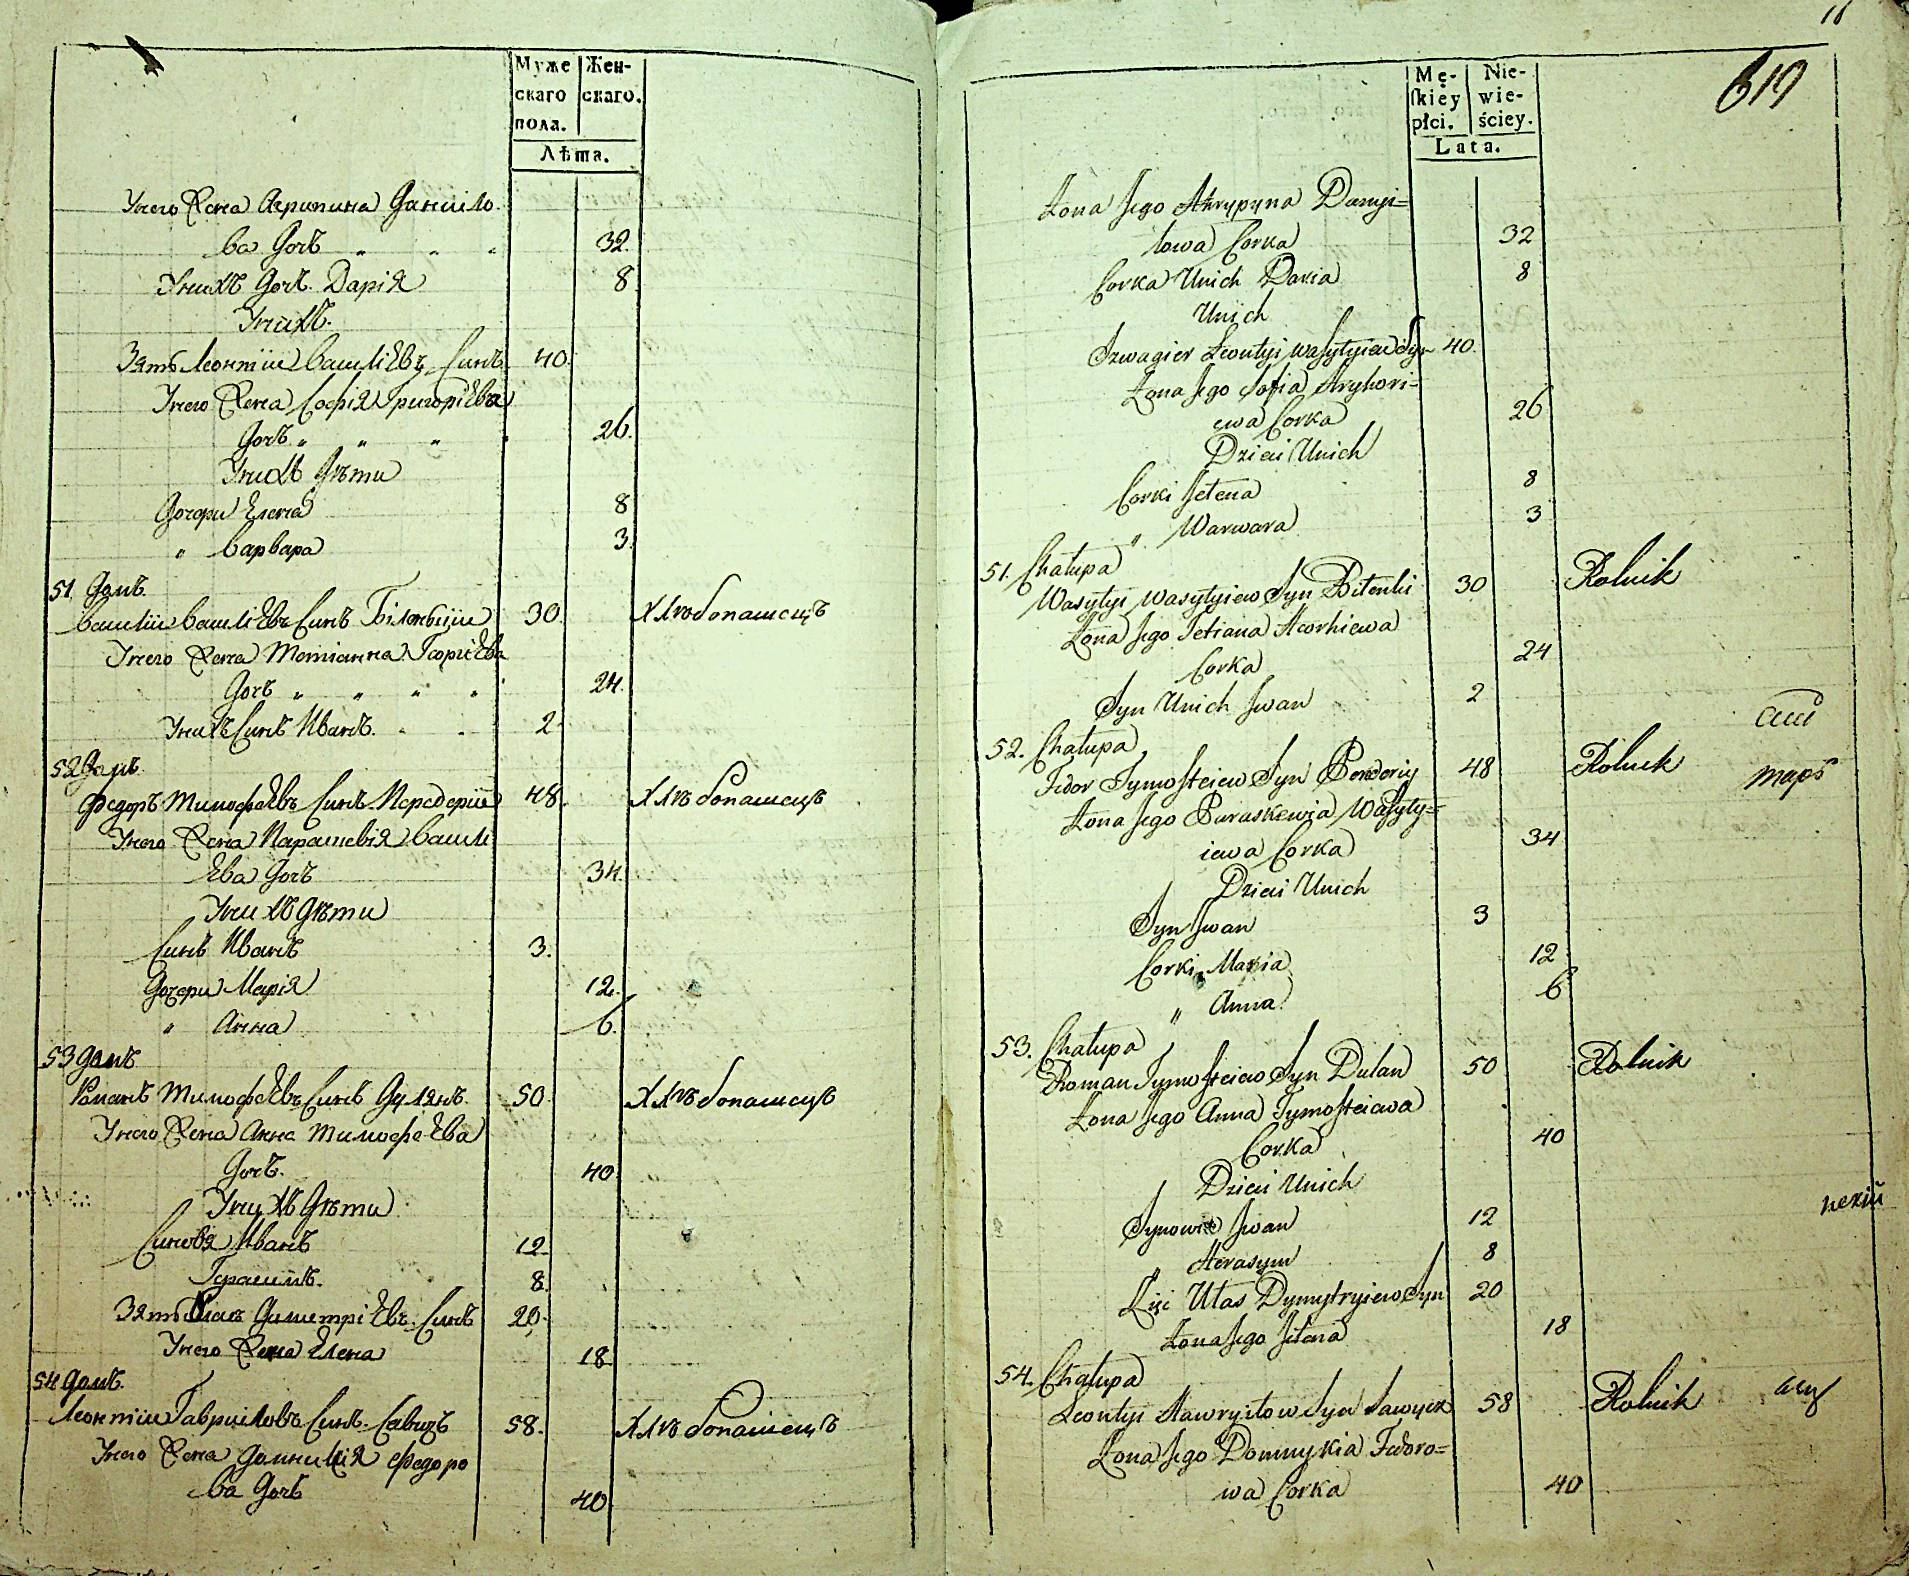 Муже
скаго
пола.
Жен-
скаго.
Лѣта.
Унего Жена Агрипина Данiило
ва Дочь " " " 32.
Унихъ Дочь Дарiя 8
Унихъ.
Зять Леонтiи Василiевъ Синъ 40.
Унего Жена Софiя Григорiева
Дочь " " " 26.
Унихъ Дѣти
Дочери Елена 8
" Варвара 3.
51 Домъ
Василiи Василiевъ Синъ 30. Хлѣбопашецъ
Унего Жена Тетianна Георгiева
Дочь " " " " 24.
Унихъ Синъ Иванъ. 2.
52 Домъ
Федоръ Тимофеевъ Синъ 48. Хлѣбопашецъ
Унего Жена Парашевiя Васили
ева Дочь 34.
Унихъ Дѣти
Синъ Иванъ 3.
Дочери Марiя 12.
" Анна 6.
53 Домъ
Романъ Тимофеевъ Синъ Дулянъ. 50. Хлѣбопашецъ
Унего Жена Анна Тимофеева
Дочь. 40.
Унихъ Дѣти
Синовя Иванъ 12.
Герасимъ. 8.
Зять Власъ Димитрiевъ Синъ 20.
Унего Жена Елена 18.
54 Домъ.
Леонтiи Гавриловъ Синъ Савицъ 58. Хлѣбопашецъ
Унего Жена Домникiя Федоро
ва Дочь 40.
11
619
Mę-
ſkiey
płci.
Nie-
wie-
ściey.
Lata.
Żona Jego Ahrypyna Danyi=
łowa Corka 32
Corka Unich Daria 8
Unich
Szwagier Leontyi Wasylyiew Syn 40.
Żona Jego Sofia Hryhori=
ewa Corka 26
Dzieci Unich
Corki Jełena 8
" Warwara 3
51. Chałupa
Wasylyi Wasylyiew Syn 30 Rolnik
Żona Jego Tetiana Heorhiewa
Corka 24
Syn Unich Jwan 2
52. Chałupa
Fedor Tymofteiew Syn 48 Rolnik
Żona Jego Paraskewia Wasyly=
iewa Corka 34
Dzieci Unich
Syn Jwan 3
Corki Maria 12
" Anna 6
53. Chałupa
Roman Tymofteiew Syn Dulan 50 Rolnik
Żona Jego Anna Tymofteiewa
Corka 40
Dzieci Unich
Synowie Jwan 12
" Herasym 8
Zięć Ułas Dymytryiew Syn 20
Żona Jego Jełena 18
54. Chałupa
Leontyi Hawryłow Syn Sawycz 58 Rolnik
Żona Jego Domnykia Fedoro=
wa Corka 40